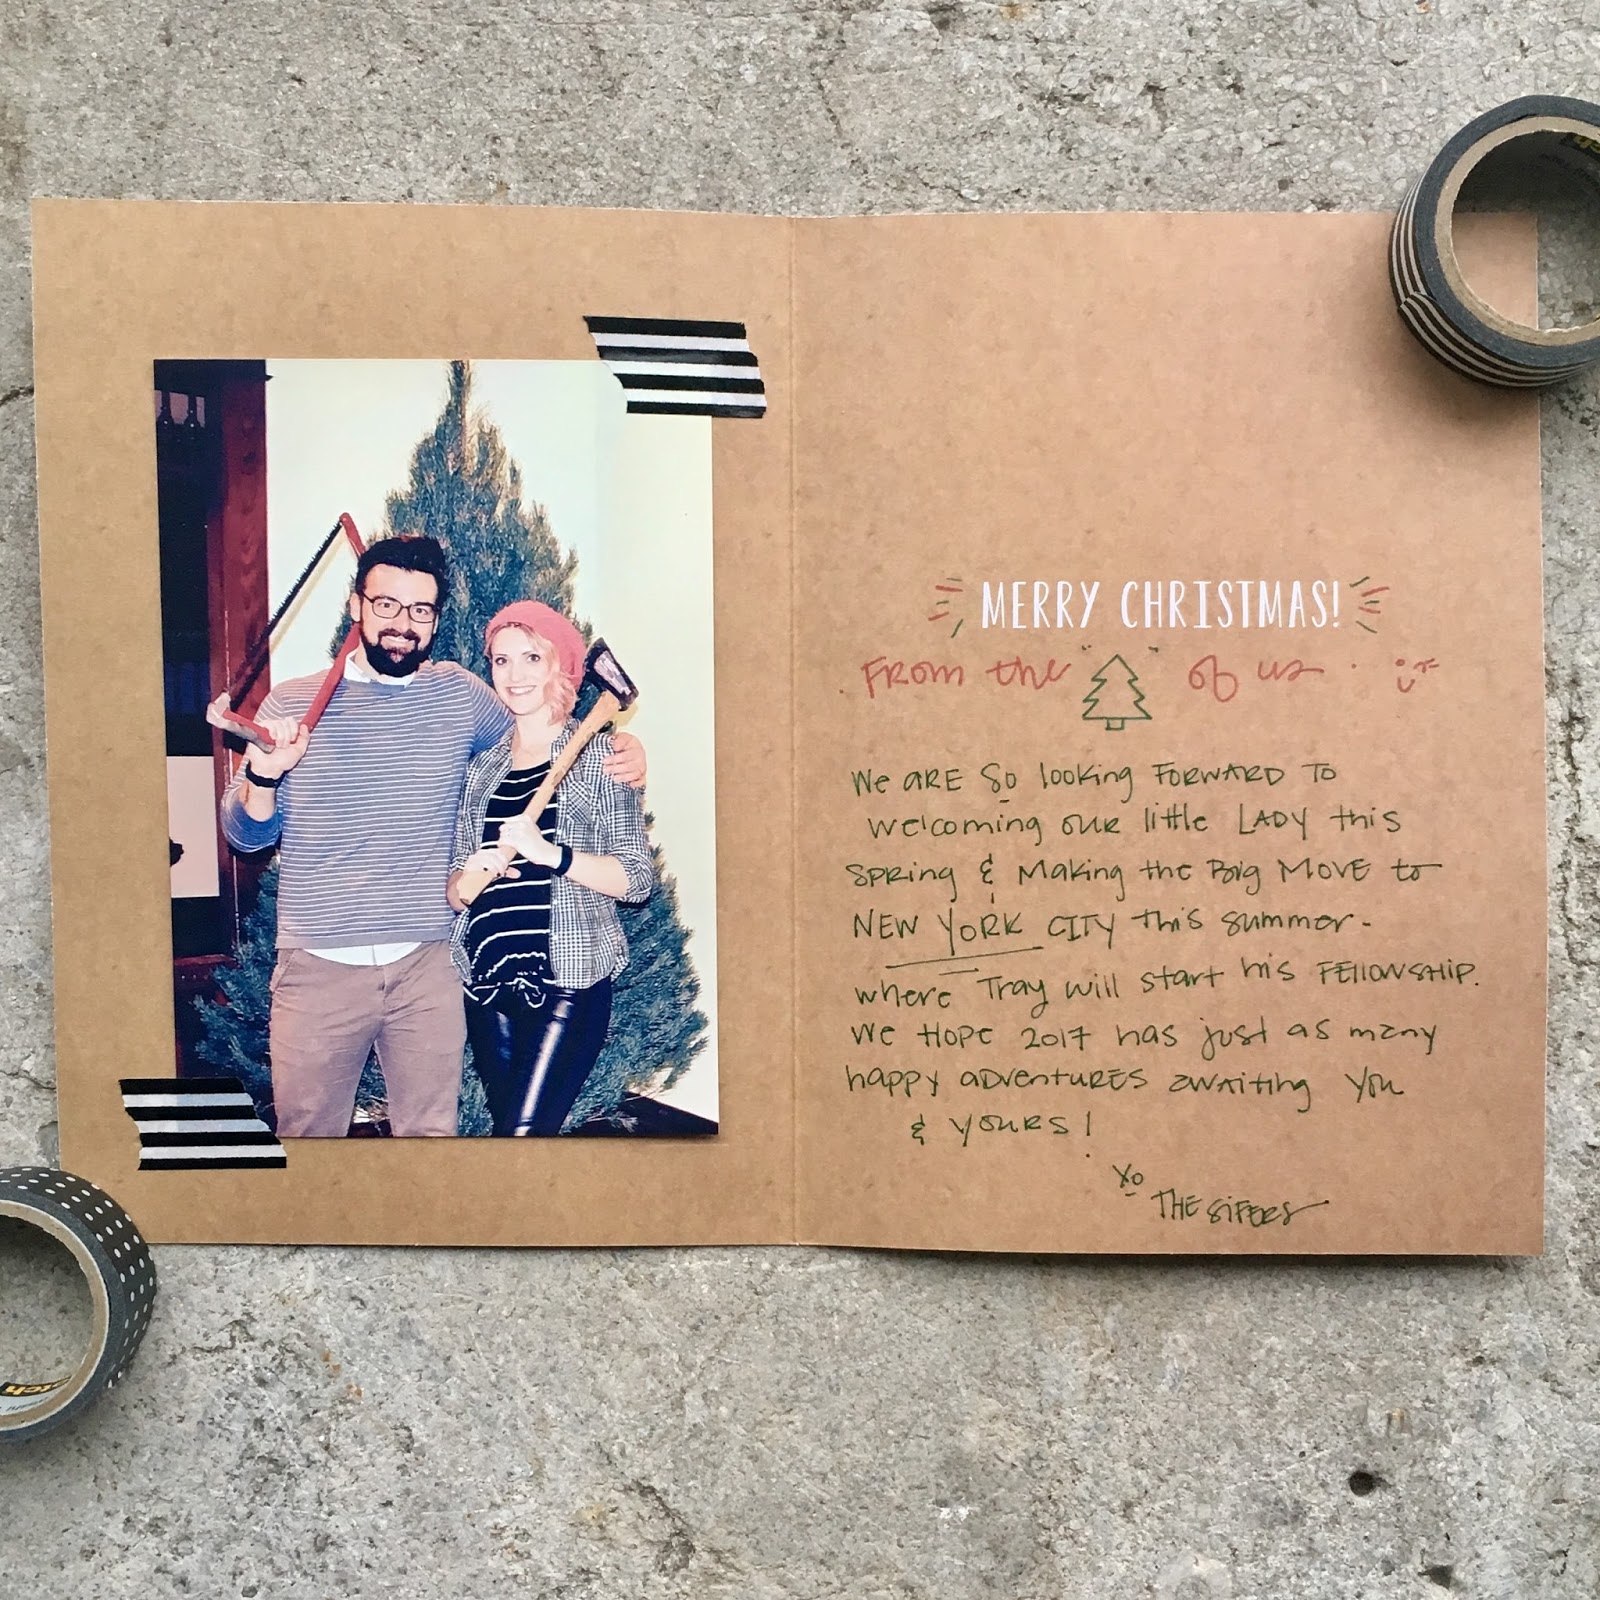 MERRY CHRISTMAS!
FROM the " " of us.
We ARE So looking FORWARD TO
welcoming our little LADY this
Spring & Making the Big MOVE to
NEW YORK CITY this summer-
where Tray will start his FELLOWSHIP.
We Hope 2017 has just as many
happy ADVENTURES awaiting You
& YOURS!
XO
THE SIFERS